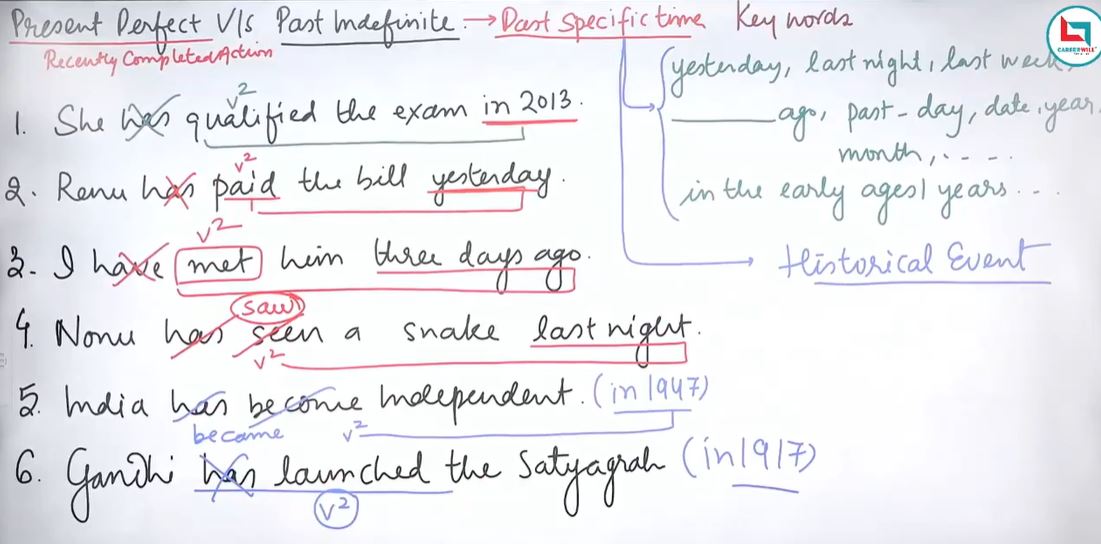 Present Perfect V/s Past Indefinite → Past specific time Key words
Recently Completed Action
yesterday, last night, last week,
ago, past - day, date, year
month, . - - -
in the early ages/ years - - -
Historical Event
V2
1. She has qualified the exam in 2013.
V2
2. Renu has paid the bill yesterday.
V2
3. I have met him three days ago.
saw
4. Nonu has seen a snake last night.
V2
5. India has become Independent. (in 1947)
became V2
6. Gandhi has launched the Satyagrah (in 1917)
V2
CAREERWILL